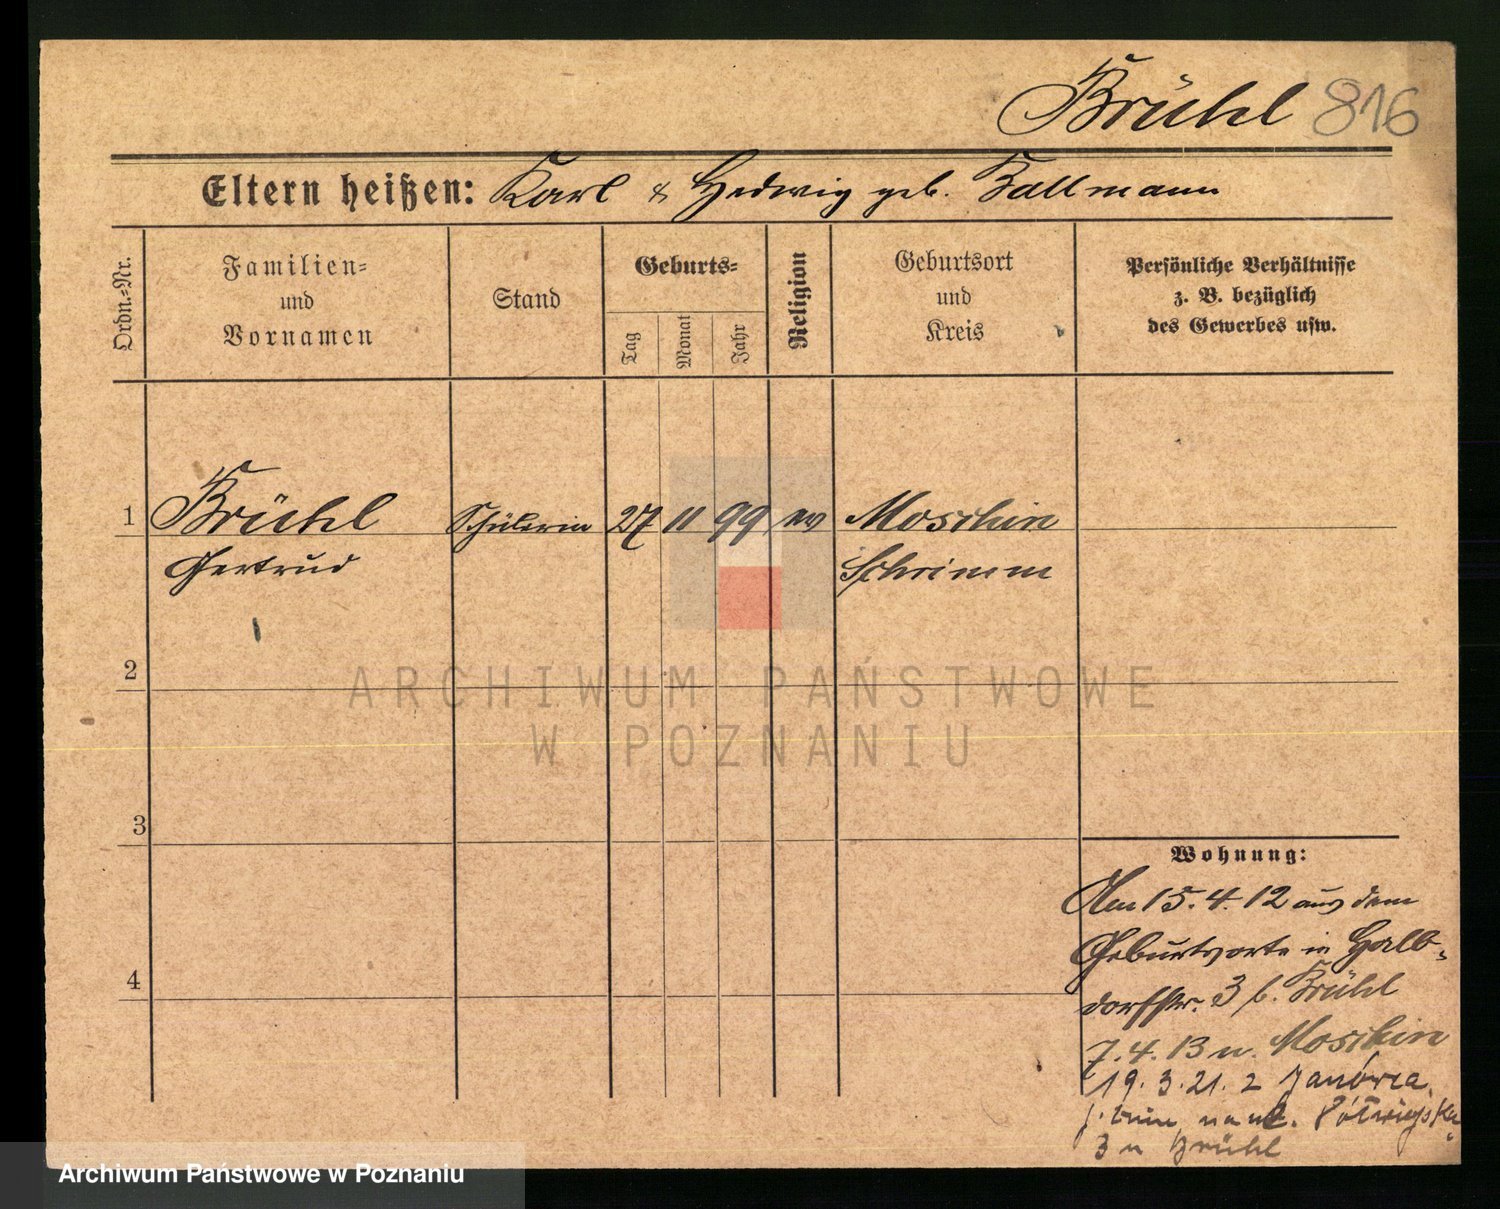 Brühl 816
Eltern heißen: Karl & Hedwig geb. Kallmann
Ordn.-Nr.
Familien-
und
Vornamen
Stand
Geburts-
Tag
Monat
Jahr
Religion
Geburtsort
und
Kreis
Persönliche Verhältnisse
z. B. bezüglich
des Gewerbes usw.
1 Brühl Schülerin 27 11 99 ev Moschin
Gertrud Schrimm
2
ARCHIWUM PAŃSTWOWE
W POZNANIU
3
4
Wohnung:
Am 15.4.12 aus dem
Geburtsorte in Halb-
dorfstr. 3 b. Brühl
7.4.13 n. Moschin
19.3.21. z Janówca
Półwiejska
3 u Brühl
Archiwum Państwowe w Poznaniu